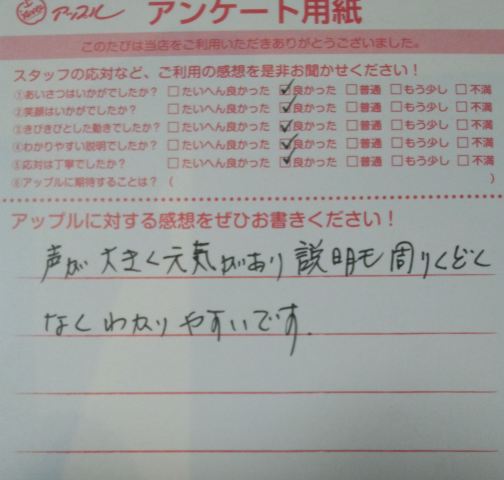 アップル アンケート用紙
このたびは当店をご利用いただきありがとうございました。
スタッフの応対など、ご利用の感想を是非お聞かせください！
①あいさつはいかがでしたか？ □たいへん良かった ☑良かった □普通 □もう少し □不満
②笑顔はいかがでしたか？ □たいへん良かった ☑良かった □普通 □もう少し □不満
③きびきびとした動きでしたか？ □たいへん良かった ☑良かった □普通 □もう少し □不満
④わかりやすい説明でしたか？ □たいへん良かった ☑良かった □普通 □もう少し □不満
⑤応対は丁寧でしたか？ □たいへん良かった ☑良かった □普通 □もう少し □不満
⑥アップルに期待することは？ （ ）
アップルに対する感想をぜひお書きください！
声が大きく元気があり説明も周りくどく
なくわかりやすいです.